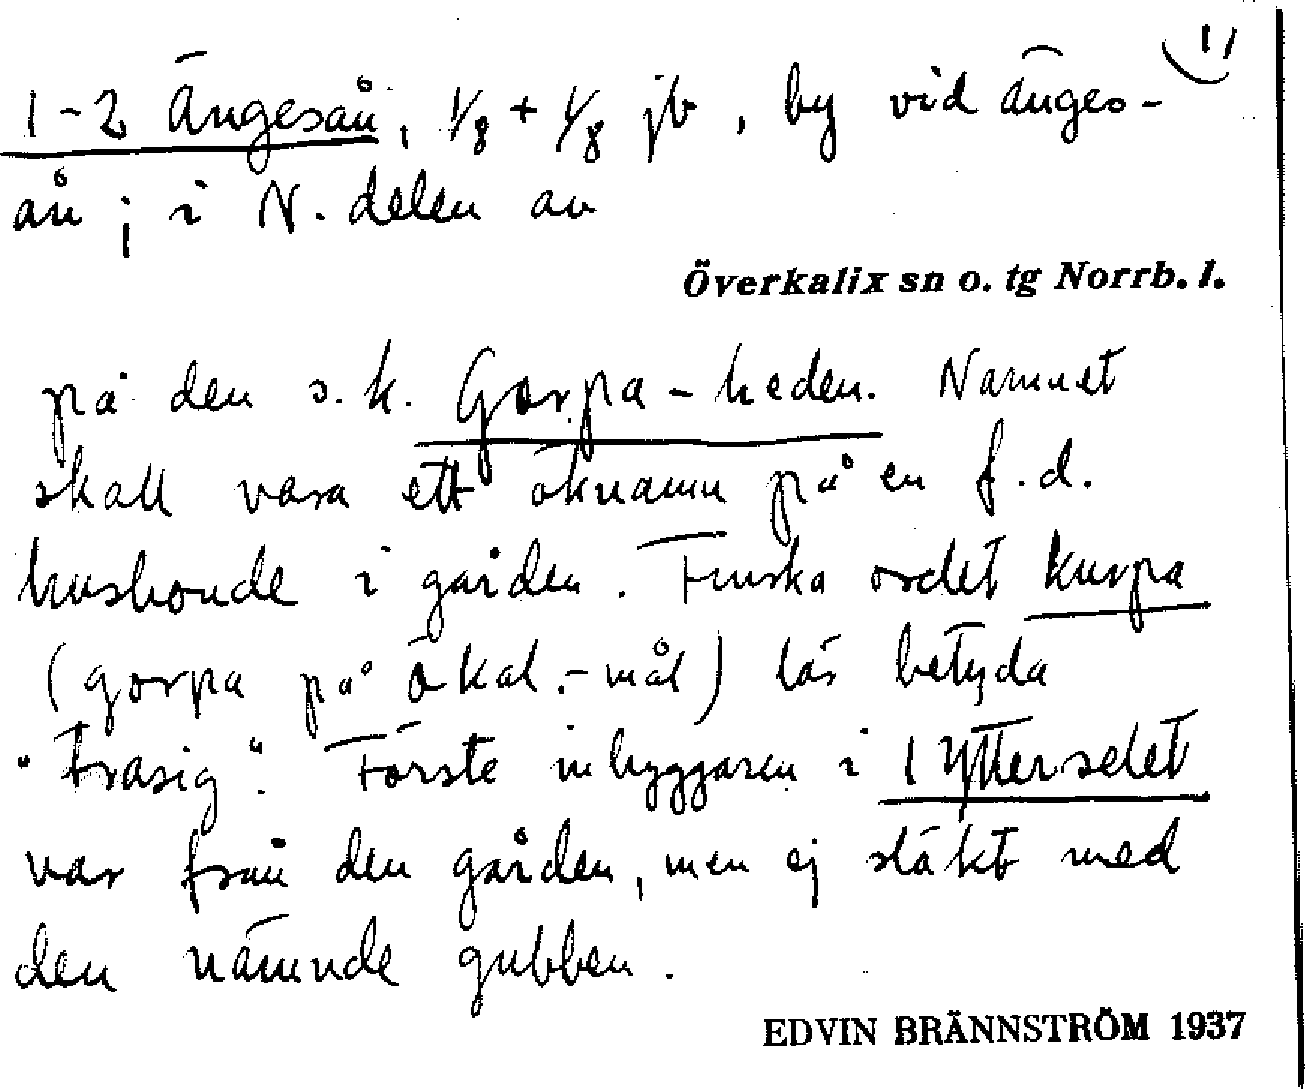 11
1-2 Ängesån, 1/8 + 1/8 jb, by vid änges-
ån; i N. delen av
Överkalix sn o. tg Norrb. l.
på den s.k. Gorpa-heden. Namnet
skall vara ett öknamn på en f.d.
husbonde i gården. Finska ordet kurpa
(gorpa på ökal.-mål) lär betyda
"trasig". Förste inbyggaren i 1 Ytterselet
var från den gården, men ej släkt med
den nämnde gubben.
EDVIN BRÄNNSTRÖM 1937